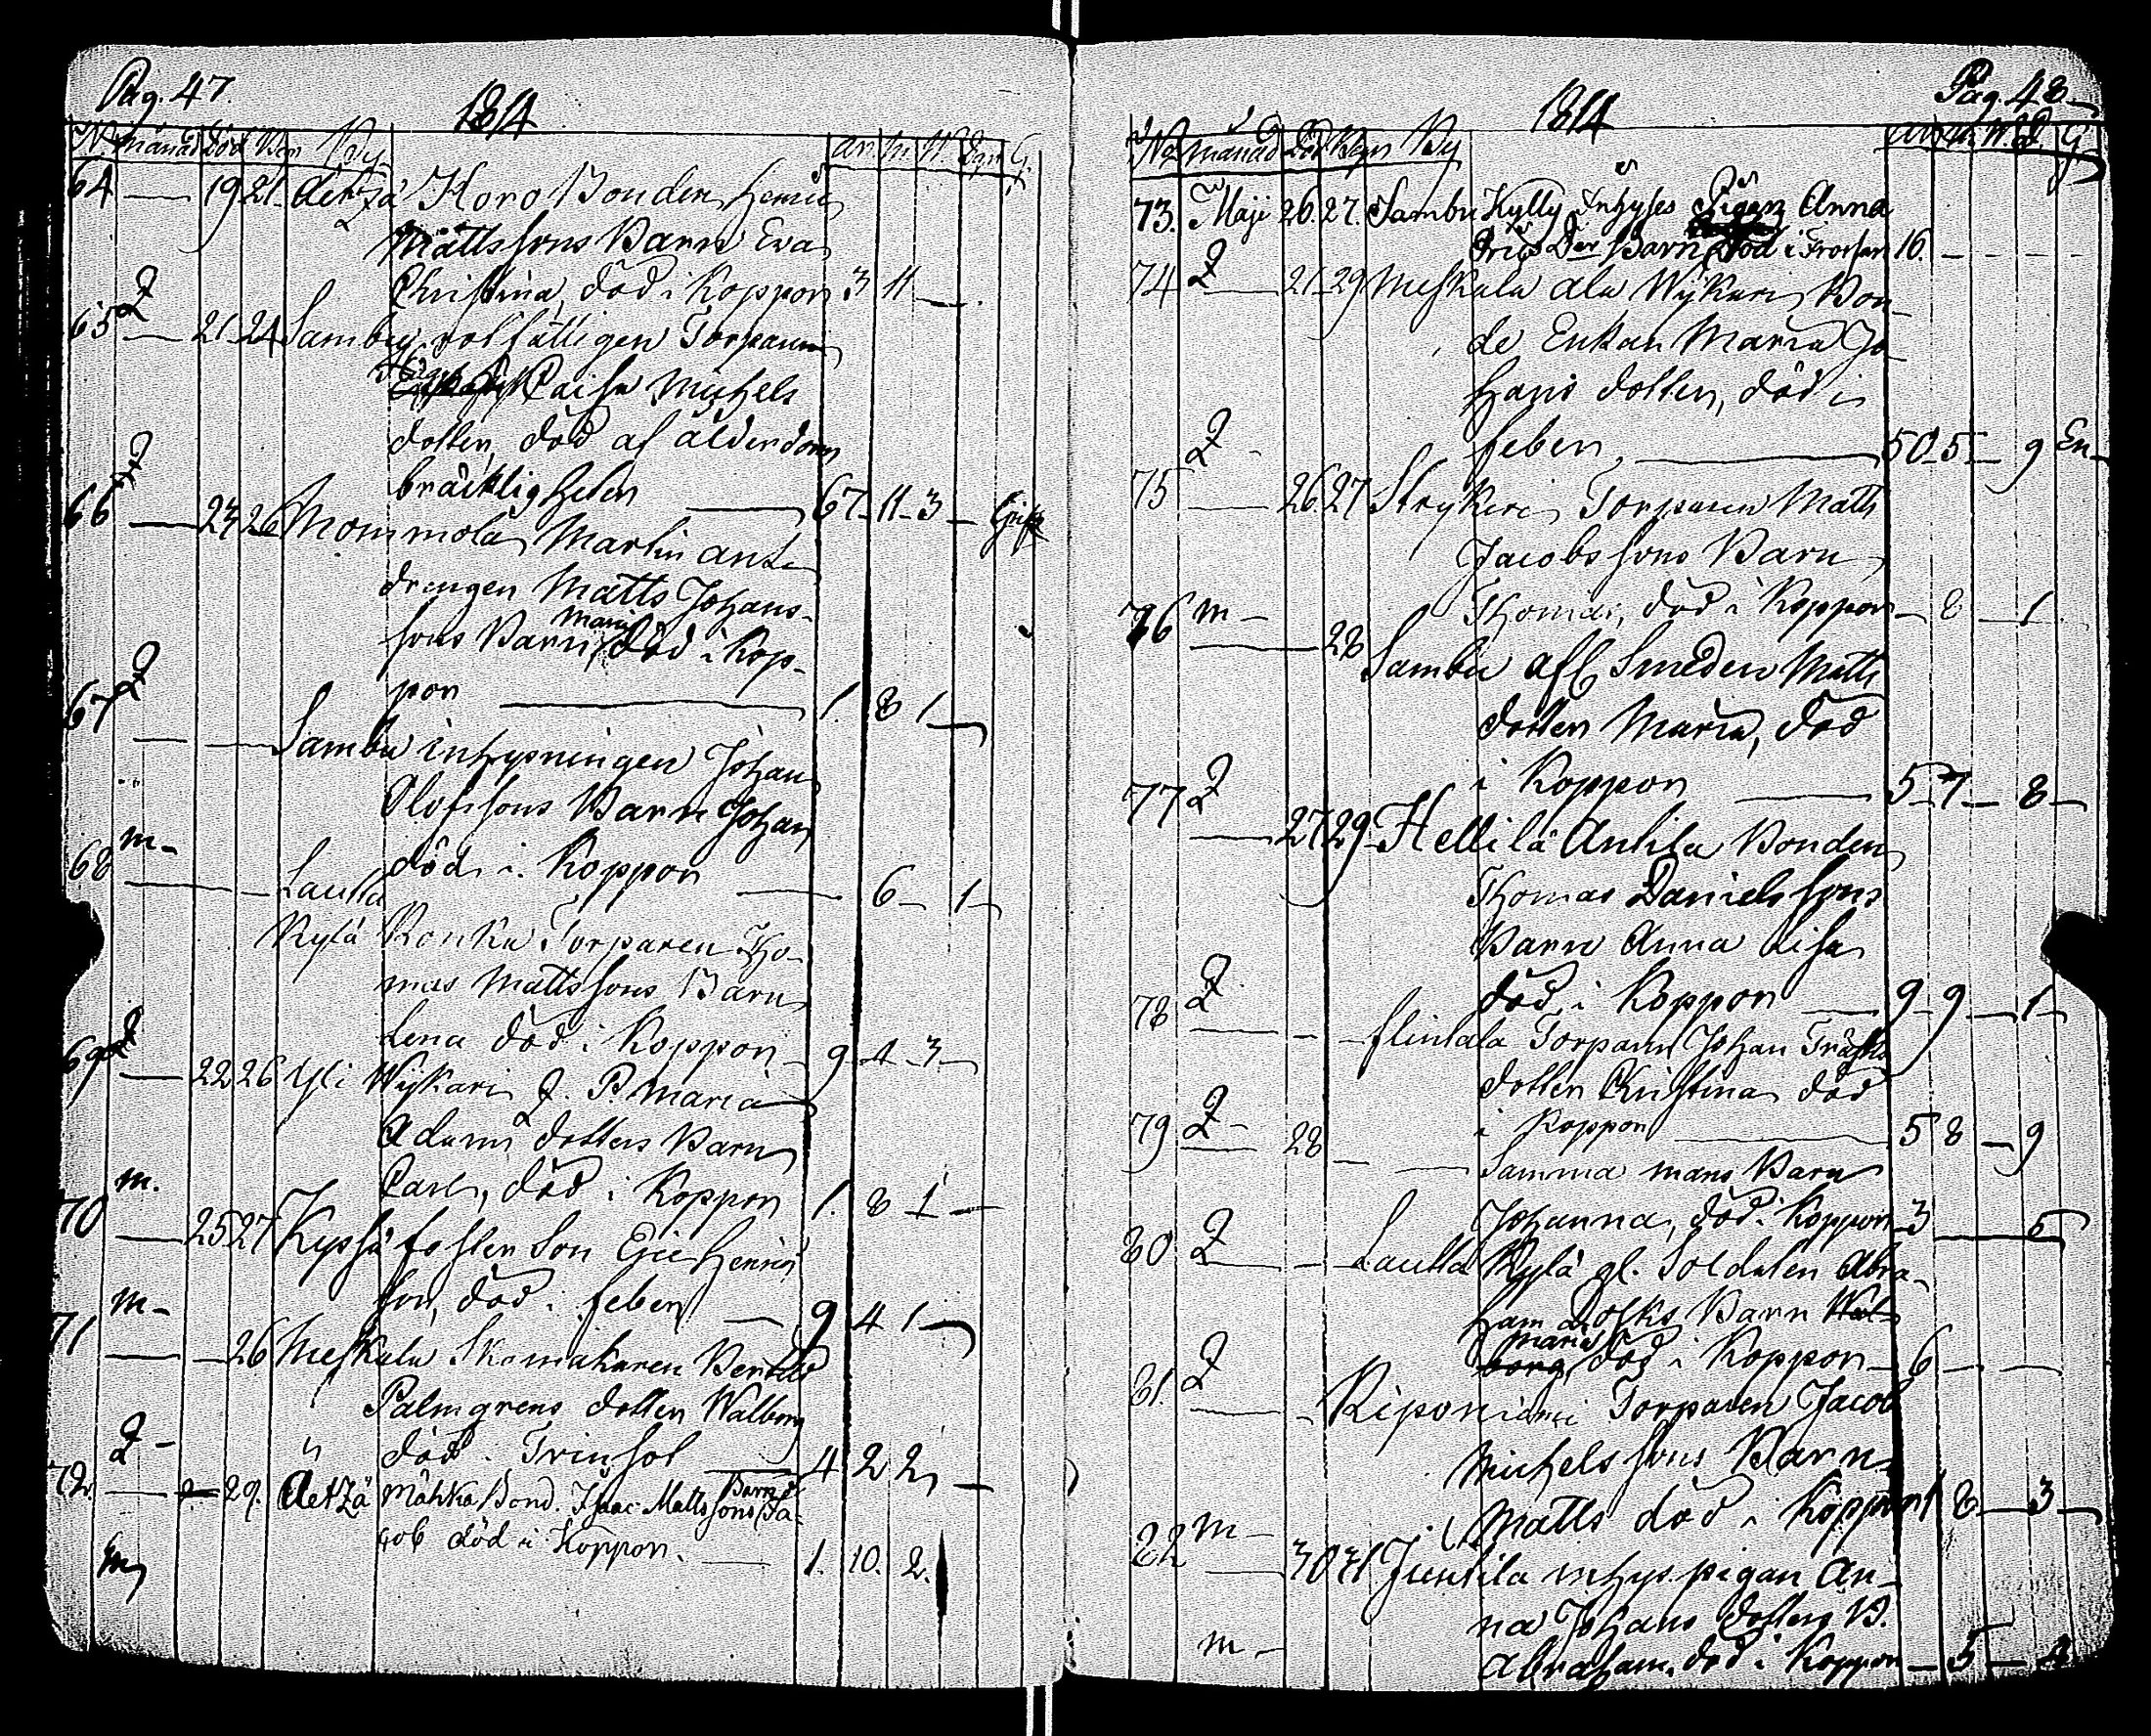 Pag. 47.
1814
N. månad Död Begr By år. M. W. Dgr G.
64 — 19 21 Aetzä Horo Bonden Henric
Mattssons Barn Eva
Christina, död i Koppor 3 11 —
65 Q — 21 24 Sambu rotfattigen Torparen
Paisa Michels
dotter, död af ålderdoms
bräckligheten — 67 11 3 —
66 — 23 26 Mommola Martin
drengen Matts Johans-
sons Barn Maria död i Kop-
por — 1. 8 1 —
67 Q — — Sambu inhysningen Johan
Olofssons Barn Johan
m — död i Koppor — 6 — 1
68 — — Lautta
Kylä Ronka Torparen Tho-
mas Mattssons Barn
Lena död i Koppor — 9 4 3 —
69 Q — 22 26 Yli Wykari Q. P. Maria
Adams dotters Barn
m. Carl, död i Koppor 1. 8 1 —
70 — 25 27 Kyssä foster Son Eric Henrics
m — son, död i feber — 9 4 1 —
71 — — 26 Meskala Skomakaren
Palmgrens dotter Walborg
Q — död — 4 2 2 —
72. — 29. Aetzä Måhkä Bond. Isaac Matts sons Barn Ja-
cob död i Koppor. — 1. 10. 2.
m
Pag. 48
1814
No månad Död Begr By år M. W. D. G
73. Maji 26. 27. Sambu Kylly Inhyses Pigan Anna
Barn Död i Frossen 16. — — —
74 Q — 21 29 Meskala ala Wykari Bon-
de Enkan Maria Jo-
hans dotter, död i
Q feber, — 50 5 — 9 En
75 — 26 27 Strykeri Torparen Matts
Jacobs sons Barn
m — Thomas, död i Koppor — 8 — 1
76 — 28 Sambu afl Smeden Matts
dotter Maria, död
Q i Koppor — 5 7 — 8 —
77 — 27 29 Hellilä Antila Bonden
Thomas Daniels sons
Barn Anna Lisa
Q död i Koppor — 9 9 — 1 —
78 — — Flinkala Torparen Johan
dotter Christina död
Q i Koppor — 5 8 — 9
79 — 28 — — Samma mans Barn
Johanna, död i Koppor 3 — 5
80 Q — — Lautta Kylä gl. Soldaten Abra-
ham Barn Wal-
Q borg Maria död i Koppor — 6 — —
81. — — Riponiemi Torparen Jacob
Michels sons Barn
m — Matts död i Koppor 1 8 — 3 —
82 — 30 31 Juntila inhys. pigan An-
na Johans dotters B.
m — Abraham. död i Koppor — 5 —